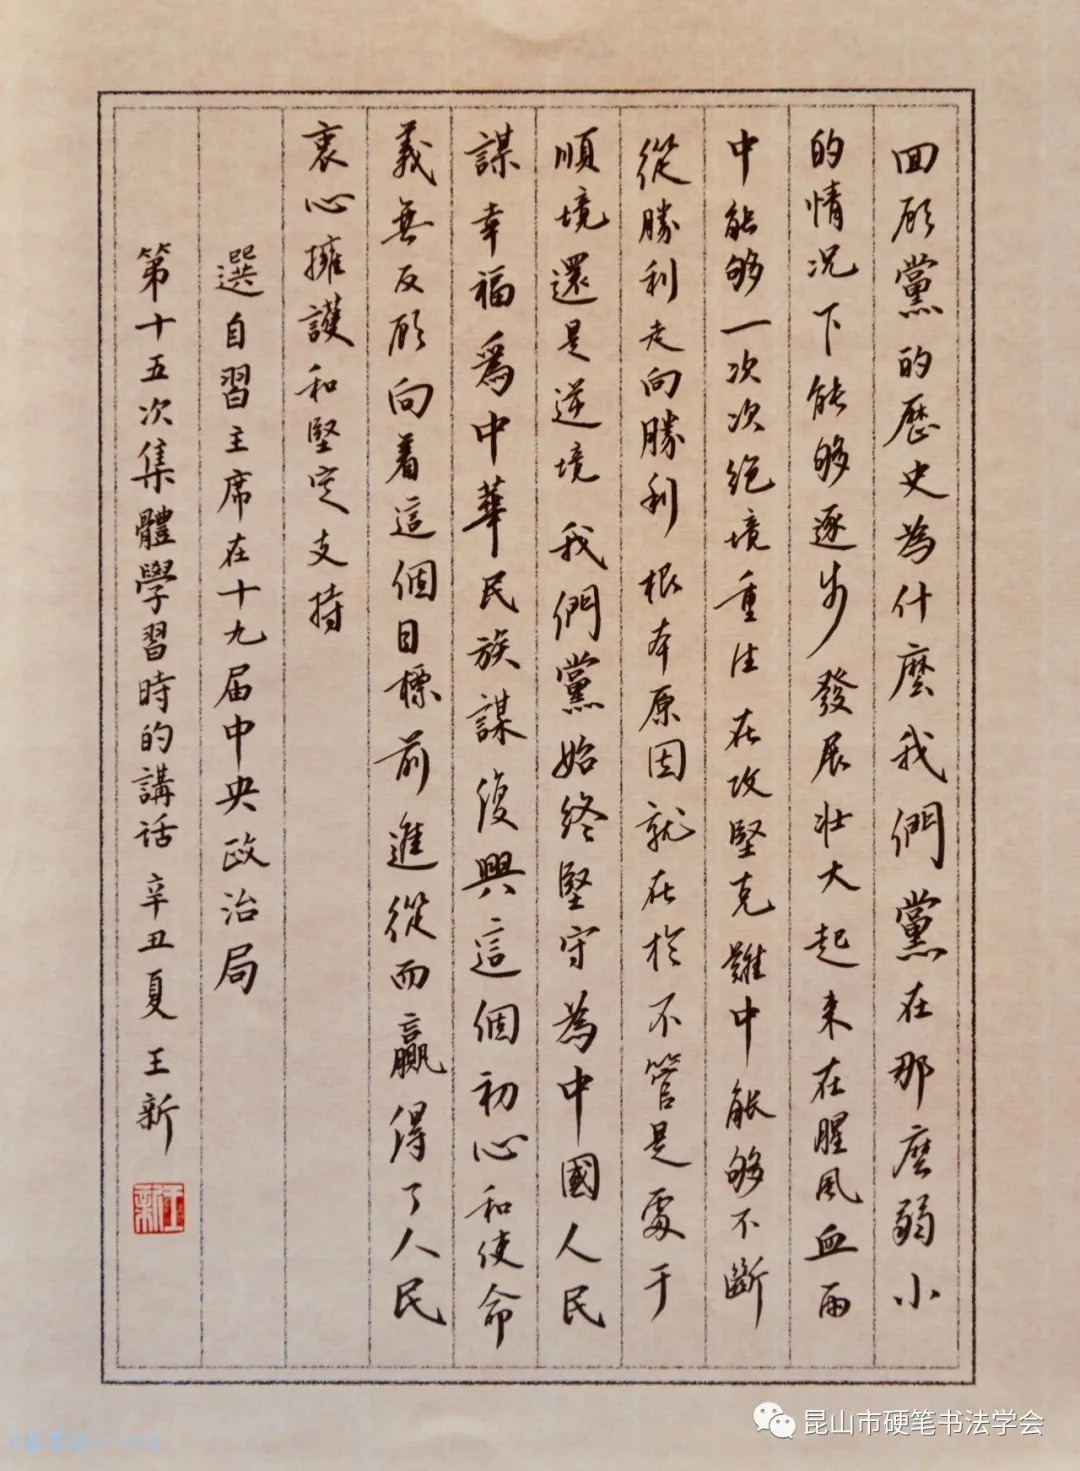 回顾黨的歷史為什麼我們黨在那麼弱小
的情况下能够逐步發展壮大起来在腥風血雨
中能够一次次绝境重生在攻堅克難中能够不斷
從勝利走向勝利根本原因就在於不管是處于
順境還是逆境我們黨始終堅守為中國人民
謀幸福爲中華民族謀復興這個初心和使命
義無反顾向着這個目標前進從而贏得了人民
衷心擁護和堅定支持
選自習主席在十九届中央政治局
第十五次集體學習時的講话 辛丑夏 王新
王新
昆山市硬笔书法学会